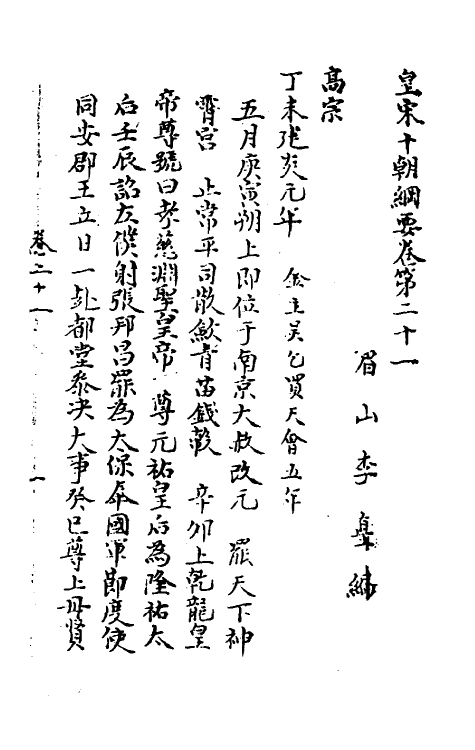 皇宋十朝綱要卷第二十一
眉山李𡌴編
高宗
丁未建炎元年 金主吳乞買天會五年
五月庚寅朔上即位于南京大赦改元 罷天下神
霄宮 止常平司散歛青苗錢穀 辛卯上乾龍皇
帝尊號曰孝慈淵聖皇帝 尊元祐皇后為隆祐太
后壬辰詔左僕射張邦昌罷為太保奉國軍節度使
同安郡王立日一赴都堂叅决大事癸巳尊上母賢
卷二十一
一